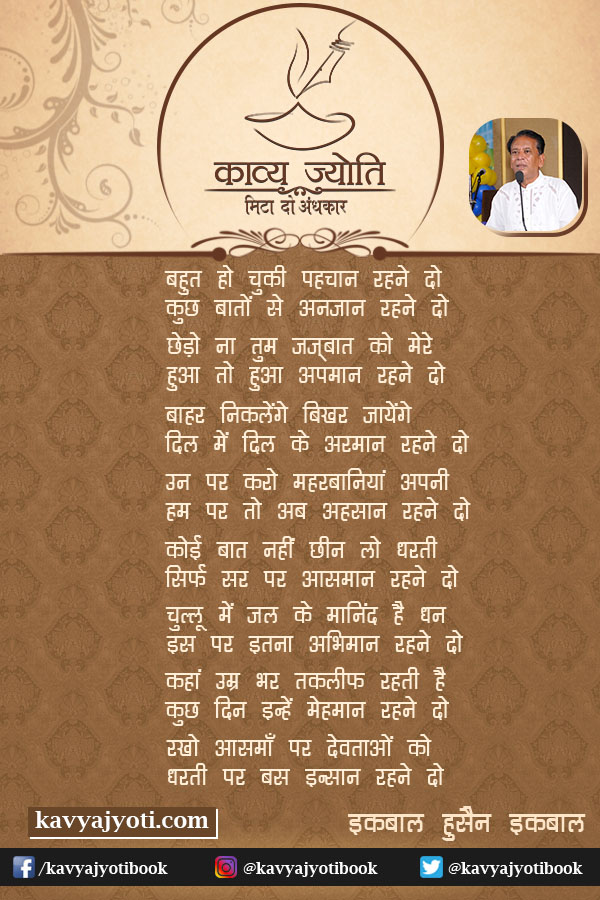 काव्य ज्योति
मिटा दो अंधकार
बहुत हो चुकी पहचान रहने दो
कुछ बातों से अनजान रहने दो
छेड़ो ना तुम जज्बात को मेरे
हुआ तो हुआ अपमान रहने दो
बाहर निकलेंगे बिखर जायेंगे
दिल में दिल के अरमान रहने दो
उन पर करो महरबानियां अपनी
हम पर तो अब अहसान रहने दो
कोई बात नहीं छीन लो धरती
सिर्फ सर पर आसमान रहने दो
चुल्लू में जल के मानिंद है धन
इस पर इतना अभिमान रहने दो
कहां उम्र भर तकलीफ रहती है
कुछ दिन इन्हें मेहमान रहने दो
रखो आसमाँ पर देवताओं को
धरती पर बस इन्सान रहने दो
kavyajyoti.com
इकबाल हुसैन इकबाल
/kavyajyotibook
@kavyajyotibook
@kavyajyotibook